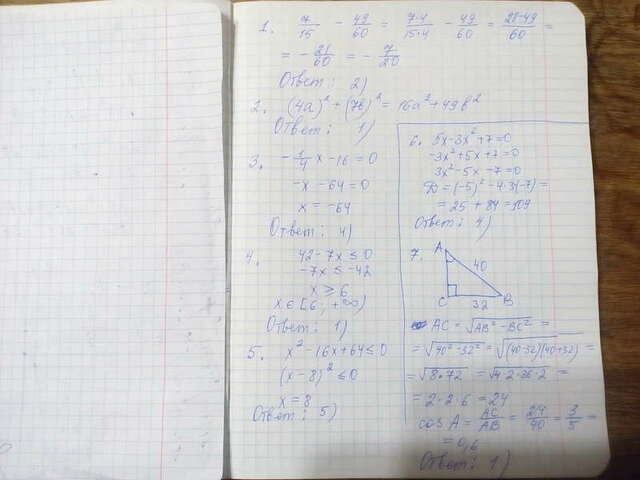 1. 7/15 - 49/60 = 7·4/15·4 - 49/60 = 28-49/60 =
= - 21/60 = - 7/20
Ответ: 2)
2. (4a)² + (7b)² = 16a² + 49b²
Ответ: 1)
3. - 1/4 x - 16 = 0
-x - 64 = 0
x = -64
Ответ: 4)
4. 42 - 7x ≤ 0
-7x ≤ -42
x ≥ 6
x ∈ [6; +∞)
Ответ: 1)
5. x² - 16x + 64 ≤ 0
(x - 8)² ≤ 0
x = 8
Ответ: 5)
6. 5x - 3x² + 7 = 0
-3x² + 5x + 7 = 0
3x² - 5x - 7 = 0
D = (-5)² - 4·3(-7) =
= 25 + 84 = 109
Ответ: 4)
7. A
40
C 32 B
AC = √AB² - BC² =
= √40² - 32² = √(40-32)(40+32) =
= √8·72 = √4·2·36·2 =
= 2·2·6 = 24
cos A = AC/AB = 24/40 = 3/5 =
= 0,6
Ответ: 1)